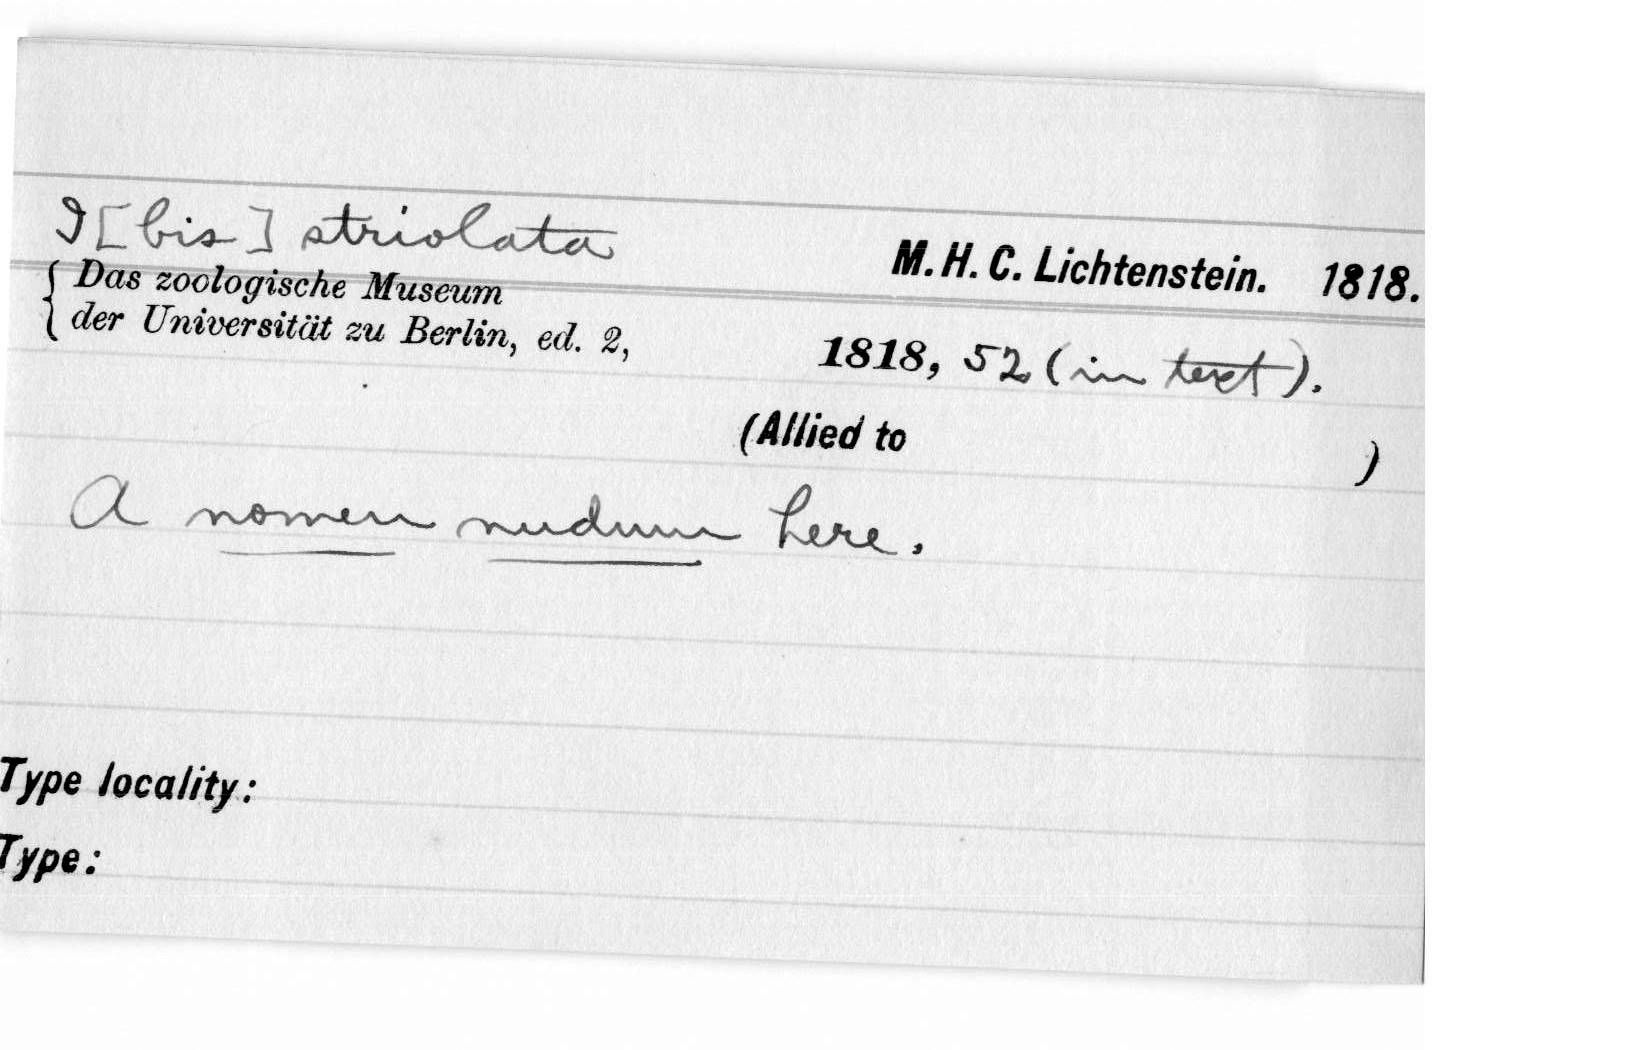 I[bis] striolata
M. H. C. Lichtenstein. 1818.
{ Das zoologische Museum
der Universität zu Berlin, ed. 2,
1818, 52 (in text).
(Allied to )
A nomen nudum here.
Type locality:
Type: